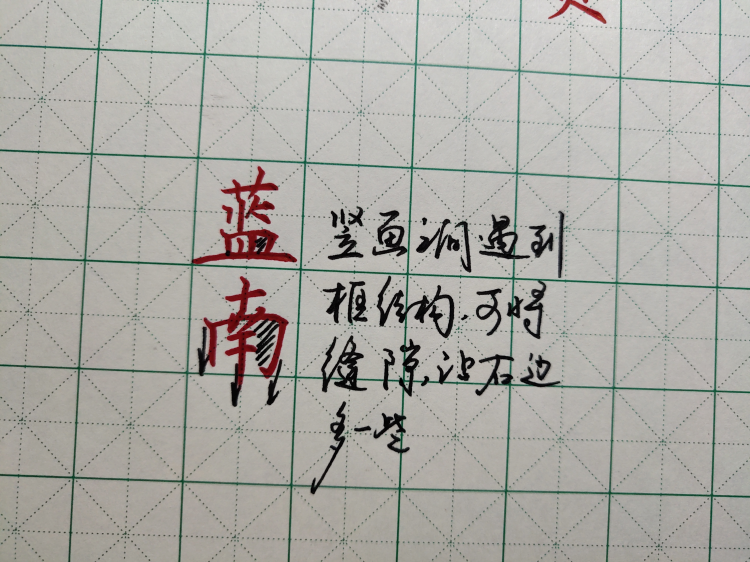 蓝
南
竖画之间遇到
框结构.可将
缝隙,让右边
多一些